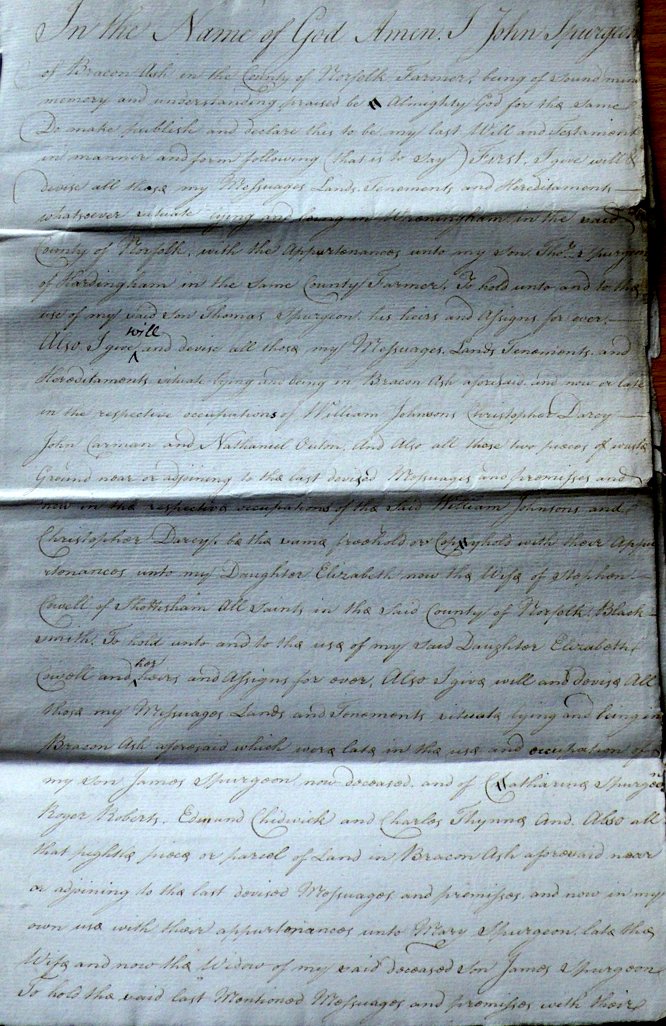 In the Name of God Amen. I John Spurgeon
of Bracon Ash in the County of Norfolk Farmer, being of sound mind
memory and understanding praised be Almighty God for the same
Do make publish and declare this to be my last Will and Testament
in manner and form following (that is to say) First, I give will &
devise all those my Messuages Lands Tenements and Hereditaments
whatsoever situate lying and being in Wreningham in the said
County of Norfolk, with the Appurtenances unto my son Thos. Spurgeon
of Hardingham in the same County Farmer, To hold unto and to the
use of my said Son Thomas Spurgeon his heirs and Assigns for ever.
Also I give will and devise all those my Messuages Lands Tenements and
Hereditaments situate lying and being in Bracon Ash aforesaid and now or late
in the respective occupations of William Johnsons Christopher Darcy
John Carman and Nathaniel And Also all those two pieces of waste
Ground near or adjoining to the last devised Messuages and premisses and
now in the respective occupations of the said William Johnsons and
Christopher Darcy, be the same freehold or Copyhold with their Appur
tenances unto my Daughter Elizabeth now the Wife of Stephen
Cowell of Shottisham All Saints in the said County of Norfolk Black
smith. To hold unto and to the use of my said Daughter Elizabeth
Cowell and her heirs and Assigns for ever. Also I give will and devise All
those my Messuages Lands and Tenements situate lying and being in
Bracon Ash aforesaid which were late in the use and occupation of
my son James Spurgeon now deceased, and of Catharine Spurgeon
Roger Roberts, Edmund Chidwick and Charles Thynne And Also all
that pightle piece or parcel of Land in Bracon Ash aforesaid near
or adjoining to the last devised Messuages and premisses, and now in my
own use with their appurtenances unto Mary Spurgeon, late the
Wife and now the Widow of my said deceased son James Spurgeon
To hold the said last Mentioned Messuages and premisses with their